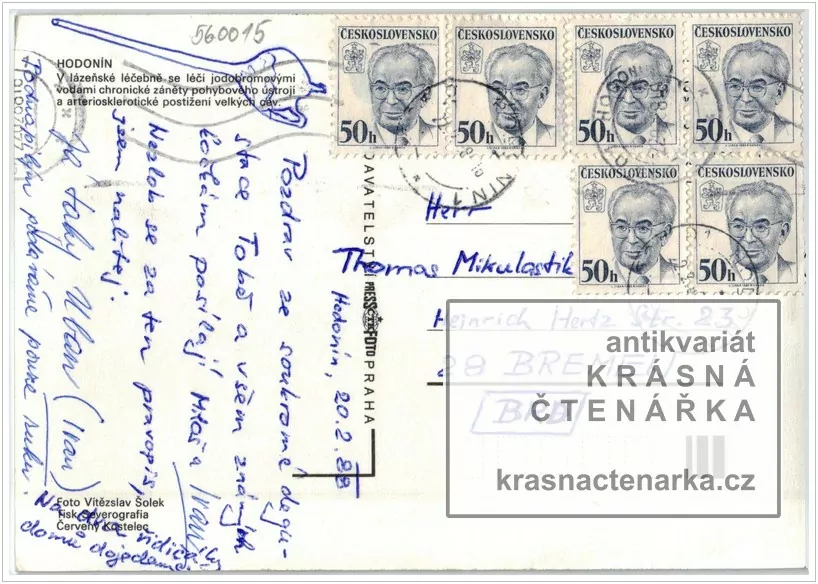 560015
HODONÍN
V lázeňské léčebně se léčí jodobromovými
vodami chronické záněty pohybového ústrojí
a arteriosklerotické postižení velkých cév.
ČESKOSLOVENSKO
50h
ČESKOSLOVENSKO
50h
ČESKOSLOVENSKO
50h
ČESKOSLOVENSKO
50h
ČESKOSLOVENSKO
50h
ČESKOSLOVENSKO
50h
Hodonín, 20.2.88
Pozdrav ze soukromé degu-
stace Tobě a všem známých
kočkám posílají Miťa a Ivan
Nezlob se za ten pravopis,
jsem nalitej.
Já taky (Ivan)
podáváme pouze ruku.
řidiče
domů dojedeme.
PRESSFOTO PRAHA
Herr
Thomas Mikulastik
Heinrich Hertz Str. 23
28 BREMEN
BRD
Foto Vítězslav Šolek
Tisk Severografia
Červený Kostelec
antikvariát
KRÁSNÁ
ČTENÁŘKA
krasnactenarka.cz